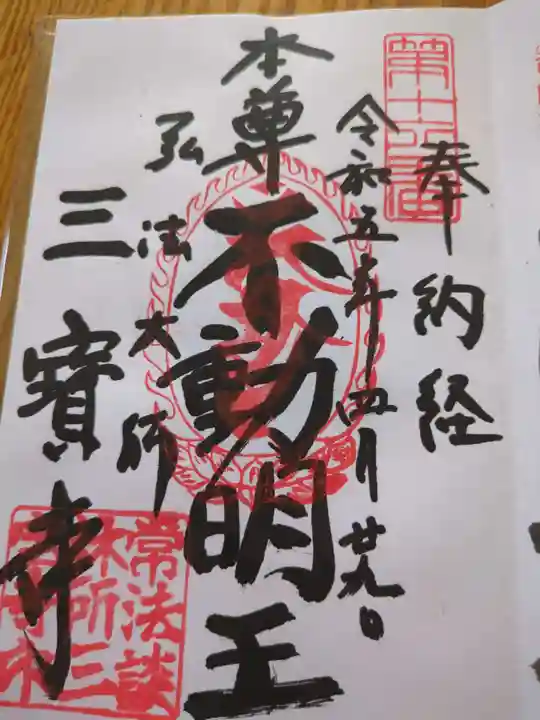 奉納経
令和五年四月廿九日
本尊不動明王
弘法大師
三寶寺
常法談
林所三